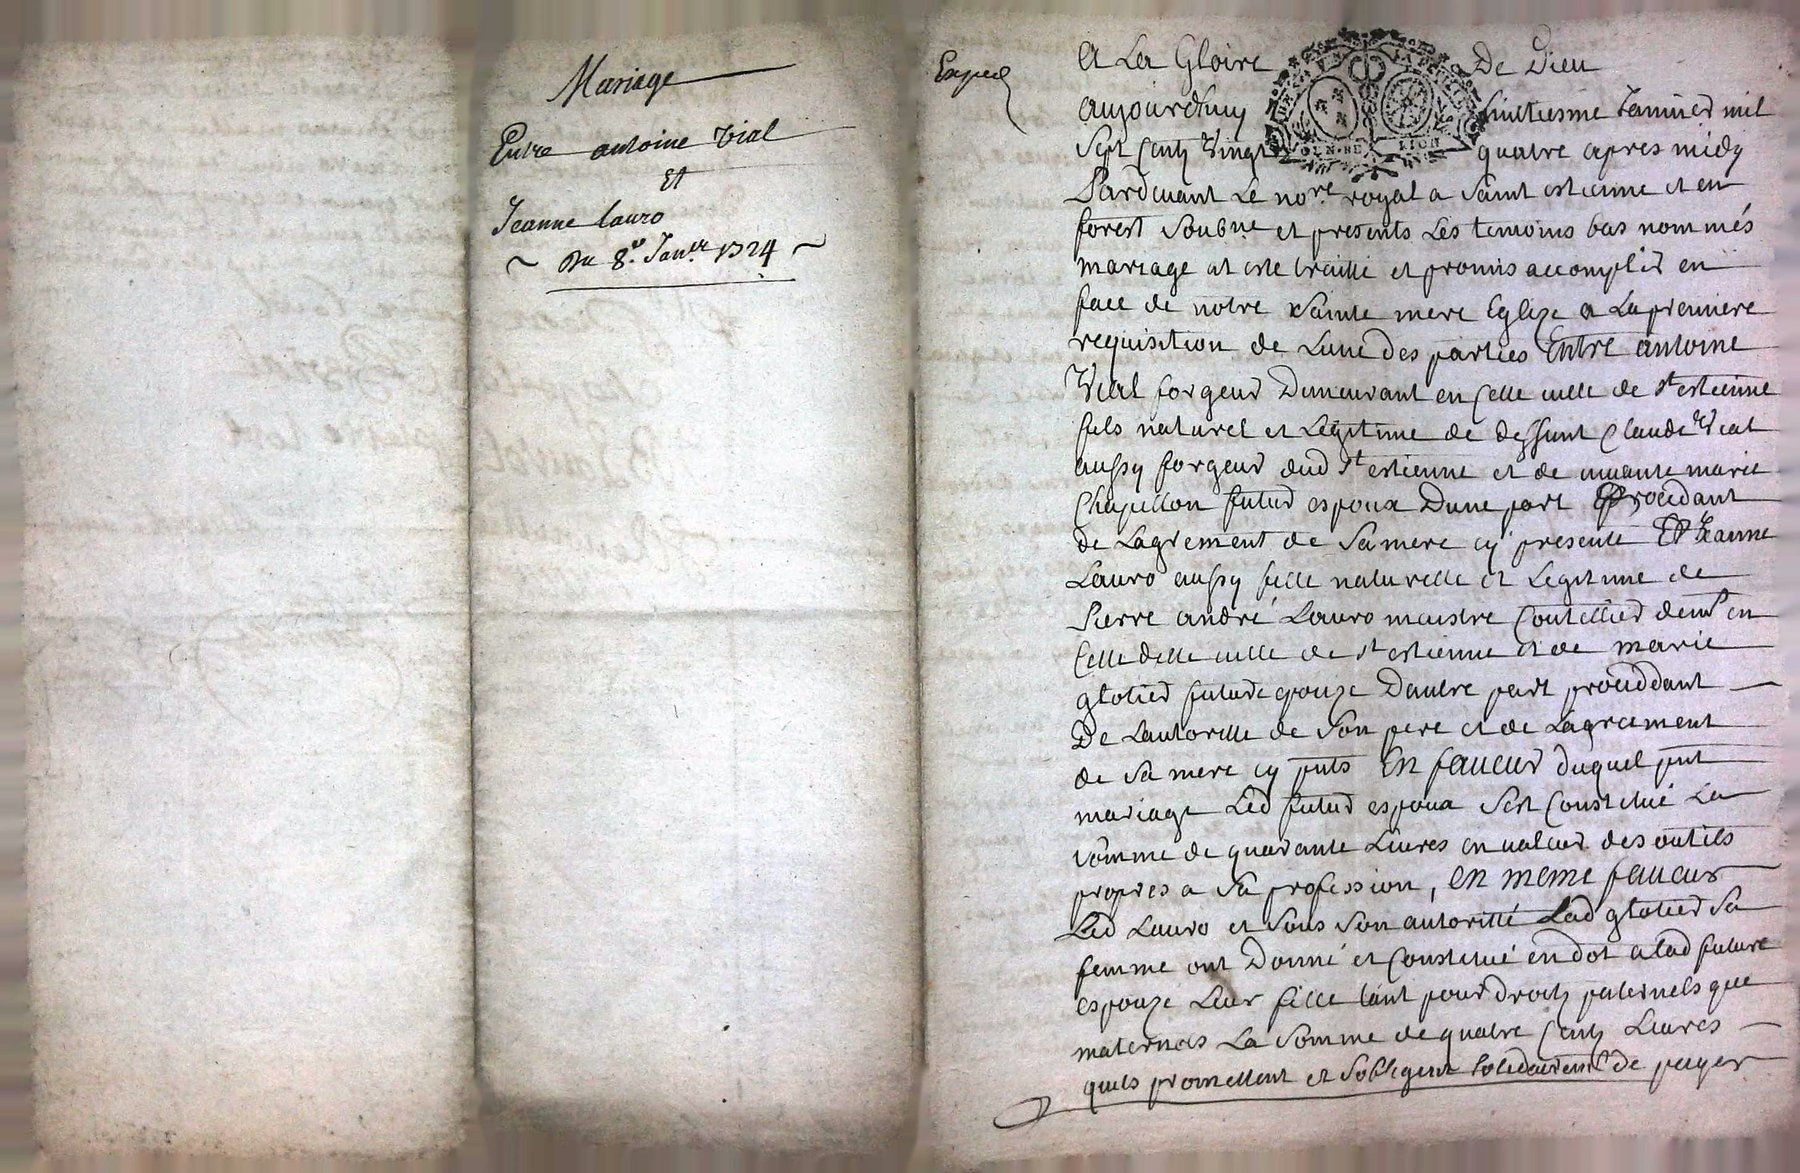 Mariage
Entre antoine Vial
Et
Jeanne Lauro
~ Du 8.e Janer 1724 ~
Exped
A La Gloire De Dieu
aujourdhuy huitiesme Janvier mil
Sept Cents Vingt quatre apres midy
Pardevant Le nore royal a Saint estienne et en
forest Soubné et presents Les temoins bas nommés
mariage at este traitté et promis accomplir en
face de notre Sainte mere Eglize a La premiere
requisition de Lune des parties Entre antoine
Vial forgeur Demeurant en Cette ville de st estienne
fils naturel et Legitime de deffunt Claude Vial
aussy forgeur dud st estienne et de vivante marie
Chapellon futur espoux Dune part Procedant
de Lagrement de Sa mere cy presente Et Jeanne
Lauro aussy fille naturelle et Legitime de
Pierre andré Lauro maistre Coutellier demt en
Cette dette ville de st estienne et de marie
glotier future epouze Dautre part proceddant
De Lautoritté de Son pere et de Lagreement
de Sa mere cy pnts En faveur duquel pnt
mariage Led futur espoux Sest Constitué La
somme de quarante Livres en valeur des outils
propres a Sa profession, En meme faveur
Led Lauro et Sous Son autoritté Lad glotier Sa
femme ont Donné et Constitué en dot a lad future
espouze Leur fille tant pour droits paternels que
maternels La Somme de quatre Cents Livres
quils promettent et Sobligent Solidairemt de payer